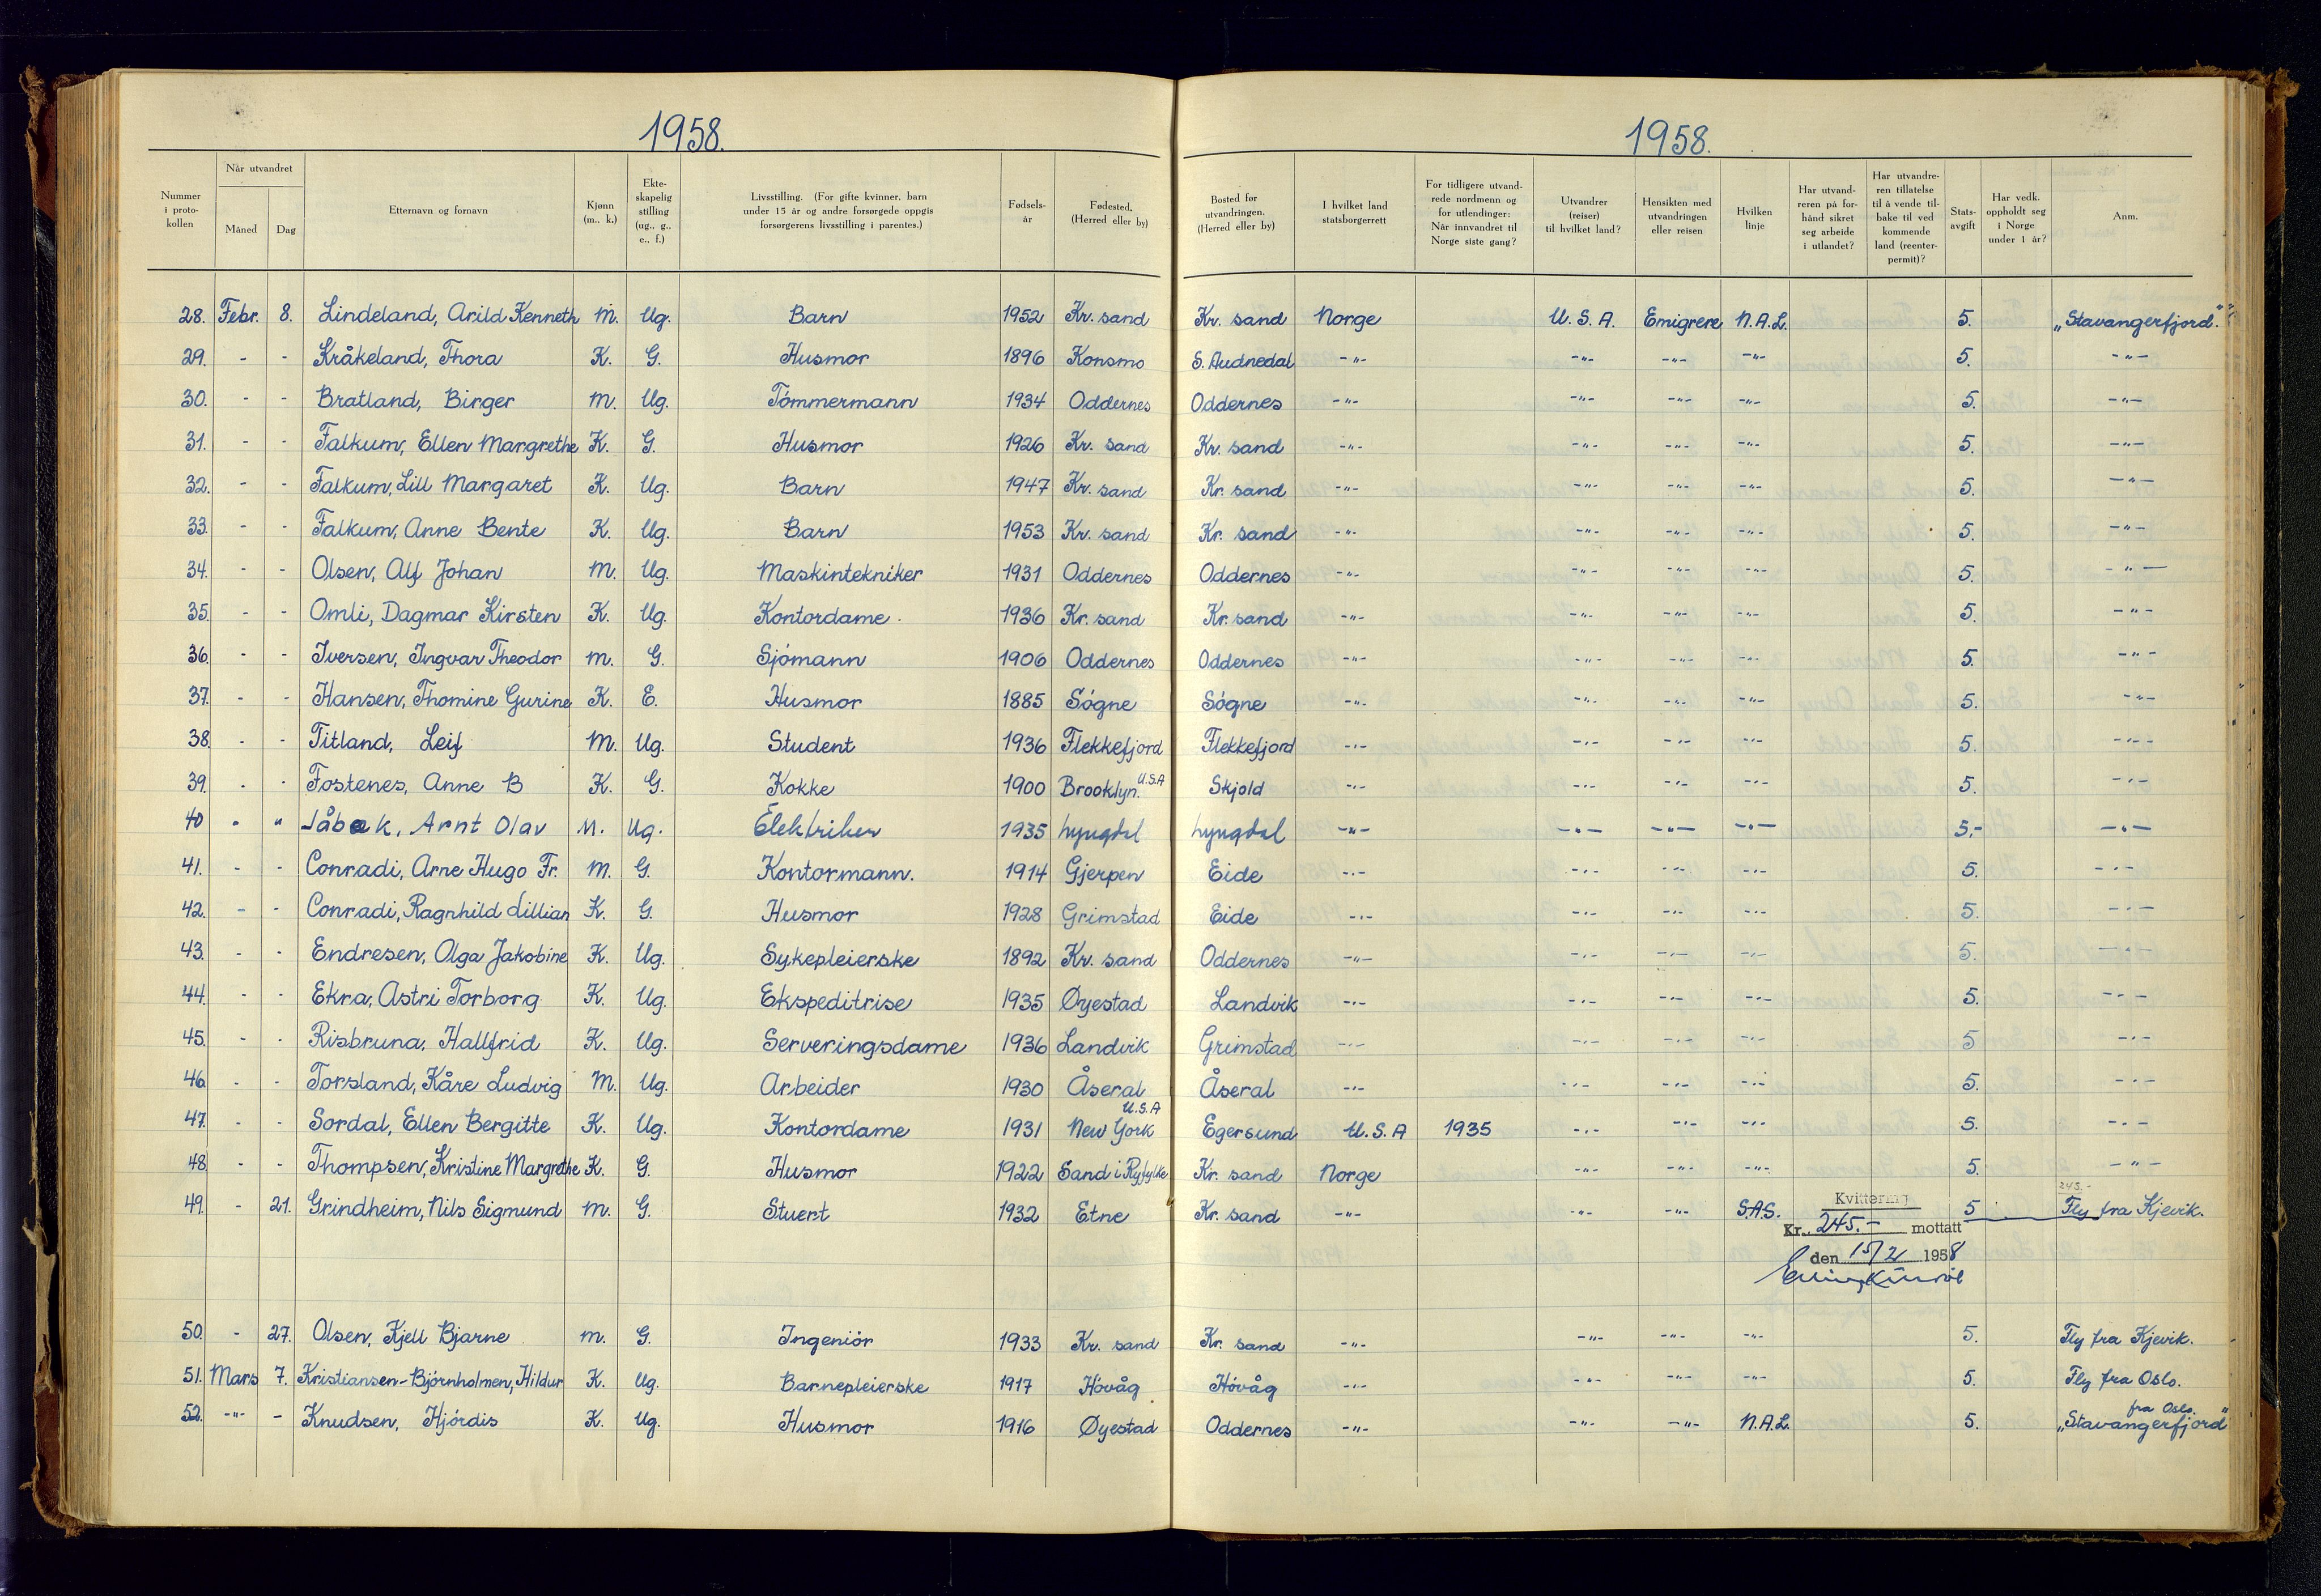 1958.
1958.
Nummer i protokollen | Når utvandret Måned Dag | Etternavn og fornavn | Kjønn (m., k.) | Ekteskapelig stilling (ug., g., e., f.) | Livsstilling. (For gifte kvinner, barn under 15 år og andre forsørgede oppgis forsørgerens livsstilling i parentes.) | Fødselsår | Fødested. (Herred eller by) | Bosted før utvandringen. (Herred eller by) | I hvilket land statsborgerrett | For tidligere utvandrede nordmenn og for utlendinger: Når innvandret til Norge siste gang? | Utvandrer (reiser) til hvilket land? | Hensikten med utvandringen eller reisen | Hvilken linje | Har utvandreren på forhånd sikret seg arbeide i utlandet? | Har utvandreren tillatelse til å vende tilbake til vedkommende land (reenterpermit)? | Statsavgift | Har vedk. oppholdt seg i Norge under 1 år? | Anm.
28. Febr. 8. Lindeland, Arild Kenneth M. Ug. Barn 1952 Kr. sand Kr. sand Norge U.S.A. Emigrere N.A.L. 5. „Stavangerfjord."
29. - - Kråkeland, Thora K. G. Husmor 1896 Konsmo S. Audnedal -"- -"- -"- -"- 5. -"-
30. - - Bratland, Birger M. Ug. Tömmermann 1934 Oddernes Oddernes -"- -"- -"- -"- 5. -"-
31. - - Falkum, Ellen Margrethe K. G. Husmor 1926 Kr. sand Kr. sand -"- -"- -"- -"- 5. -"-
32. - - Falkum, Lill Margaret K. Ug. Barn 1947 Kr. sand Kr. sand -"- -"- -"- -"- 5. -"-
33. - - Falkum, Anne Bente K. Ug. Barn 1953 Kr. sand Kr. sand -"- -"- -"- -"- 5. -"-
34. - - Olsen, Alf Johan M. Ug. Maskintekniker 1931 Oddernes Oddernes -"- -"- -"- -"- 5. -"-
35. - - Omli, Dagmar Kirsten K. Ug. Kontordame. 1936 Kr. sand Kr. sand -"- -"- -"- -"- 5. -"-
36. - - Iversen, Ingvar Theodor M. G. Sjómann 1906 Oddernes Oddernes -"- -"- -"- -"- 5. -"-
37. - - Hansen, Thomine Gurine K. E. Husmor 1885 Sógne Sógne -"- -"- -"- -"- 5. -"-
38. - - Titland, Leif M. Ug. Student 1936 Flekkefjord Flekkefjord -"- -"- -"- -"- 5. -"-
39. - - Fostenes, Anne B K. G. Kokke 1900 Brooklyn. U.S.A Skjold -"- -"- -"- -"- 5. -"-
40 " " Jåbæk, Arnt Olav M. Ug. Elektriker 1935 Lyngdal Lyngdal -"- -"- -"- -"- 5,- -"-
41. - - Conradi, Arne Hugo Fr. M. G. Kontormann. 1914 Gjerpen Eide -"- -"- -"- -"- 5. -"-
42. - - Conradi, Ragnhild Lillian K. G. Husmor 1928 Grimstad Eide -"- -"- -"- -"- 5. -"-
43. - - Endresen, Olga Jakobine K. Ug. Sykepleierske 1892 Kr. sand Oddernes -"- -"- -"- -"- 5. -"-
44. - - Ekra, Astri Torborg K. Ug. Ekspeditrise 1935 Øyestad Landvik -"- -"- -"- -"- 5. -"-
45. - - Risbruna, Hallfrid K. Ug. Serveringsdame 1936 Landvik Grimstad -"- -"- -"- -"- 5 -"-
46. - - Torsland, Kåre Ludvig M. Ug. Arbeider 1930 Åseral Åseral -"- -"- -"- -"- 5. -"-
47. - - Sordal, Ellen Bergitte K. Ug. Kontordame 1931 New York U.S.A Egersund U.S.A 1935 -"- -"- -"- 5. -"-
48. - - Thompsen, Kristine Margrethe K. G. Husmor 1922 Sand i Ryfylke Kr. sand Norge -"- -"- -"- 5. -"-
49. - 21. Grindheim, Nils Sigmund M. G. Stuert 1932 Etne Kr. sand -"- -"- -"- S.A.S. 5 245.- Fly fra Kjevik.
Kvittering
Kr. 245.- mottatt
den 15/2 1958
50. - 27. Olsen, Kjell Bjarne M. G. Ingeniór 1933 Kr. sand Kr. sand -"- -"- -"- -"- 5. Fly fra Kjevik.
51. Mars 7. Kristiansen-Bjórnholmen, Hildur K. Ug. Barnepleierske 1917 Hóvåg Hóvåg -"- -"- -"- -"- 5. Fly fra Oslo.
52. -"- - Knudsen, Hjórdis K. Ug. Husmor 1916 Øyestad Oddernes -"- -"- -"- N.A.L. 5. fra Oslo. „Stavangerfjord"